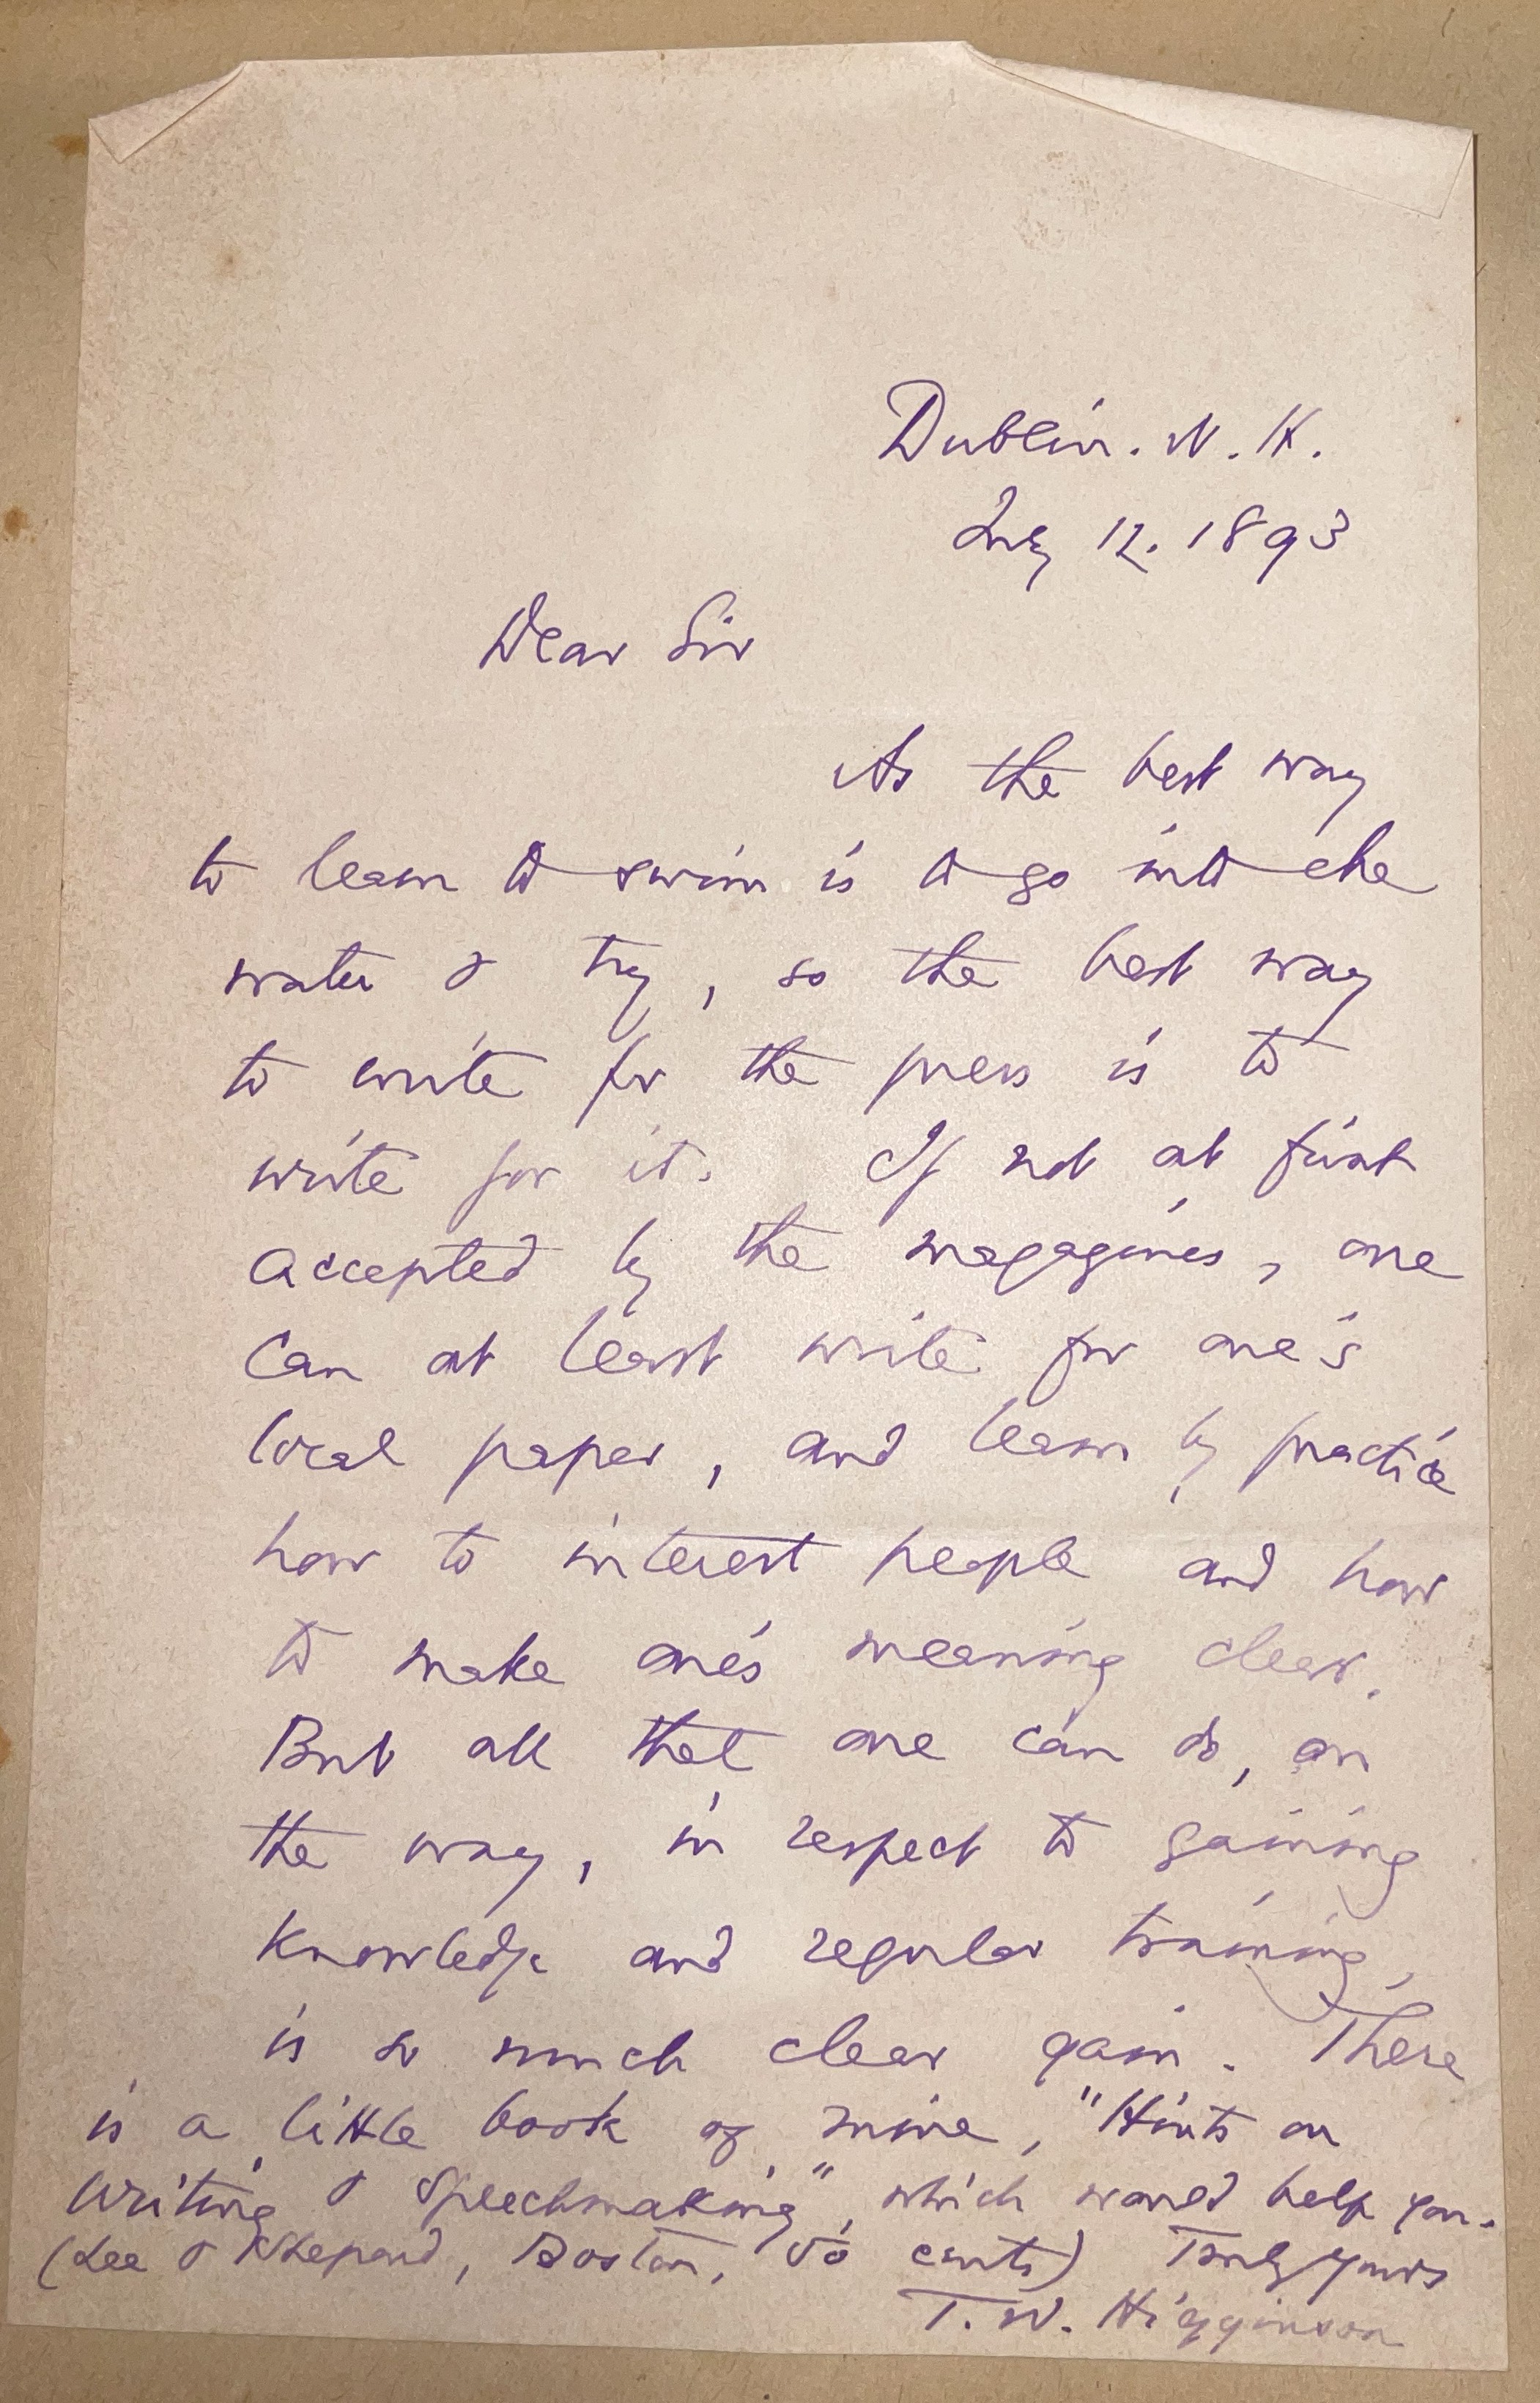 Dublin. N. H.
July 12. 1893
Dear Sir
As the best way
to learn to swim is to go into the
water & try, so the best way
to write for the press is to
write for it. If not at first
accepted by the magazines, one
can at least write for one's
local paper, and learn by practice
how to interest people and how
to make one's meaning clear.
But all that one can do, on
the way, in respect to gaining
knowledge and regular training,
is so much clear gain. There
is a little book of mine, "Hints on
Writing & Speechmaking", which would help you.
(Lee & Shepard, Boston, 50 cents) Truly yours
T. W. Higginson